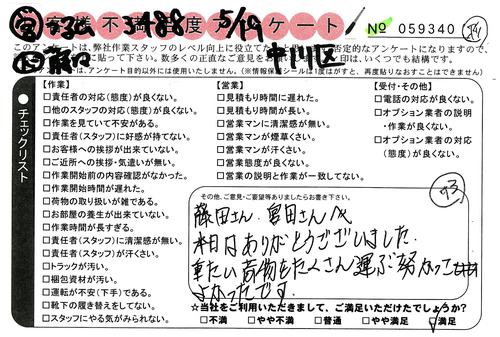 お客様不満足度アンケート
3488 5/19
№ 059340
中川区
このアンケートは、弊社作業スタッフのレベル向上に役立てたく
否定的なアンケートになりますので、
に貼って下さい。数多くの正直なご意見をお願いします。
印は、いくつでも結構です。
アンケート目的以外には使用いたしません。(※情報保護シールは1度はがすと、再度貼りなおすことはできません)
チェックリスト
【作業】
□責任者の対応(態度)が良くない。
□他のスタッフの対応(態度)が良くない。
□作業を見ていて不安がある。
□責任者(スタッフ)に好感が持てない。
□お客様への挨拶が出来ていない。
□ご近所への挨拶・気遣いが無い。
□作業開始前の内容確認がなかった。
□作業開始時間が遅れた。
□荷物の取り扱いが雑である。
□お部屋の養生が出来ていない。
□作業時間が長すぎる。
□責任者(スタッフ)に清潔感が無い。
□責任者(スタッフ)が汗くさい。
□トラックが汚い。
□梱包資材が汚い。
□運転が不安(下手)である。
□靴下の履き替えをしてない。
□スタッフにやる気がみられない。
【営業】
□見積もり時間に遅れた。
□見積もり時間が長い。
□営業マンに清潔感が無い。
□営業マンが煙草くさい。
□営業マンが汗くさい。
□営業態度が良くない。
□営業の説明と作業が一致してない。
【受付・その他】
□電話の対応が良くない。
□オプション業者の説明
・作業が良くない。
□オプション業者の対応
(態度)が良くない。
その他、ご意見・ご要望等ありましたらお書き下さい。
藤田さん、宮田さんへ
本日はありがとうございました。
重たい荷物をたくさん運ぶ
よかったです。
☆当社をご利用いただきまして、ご満足いただけたでしょうか?
□不満 □やや不満 □普通 □やや満足 ☑満足